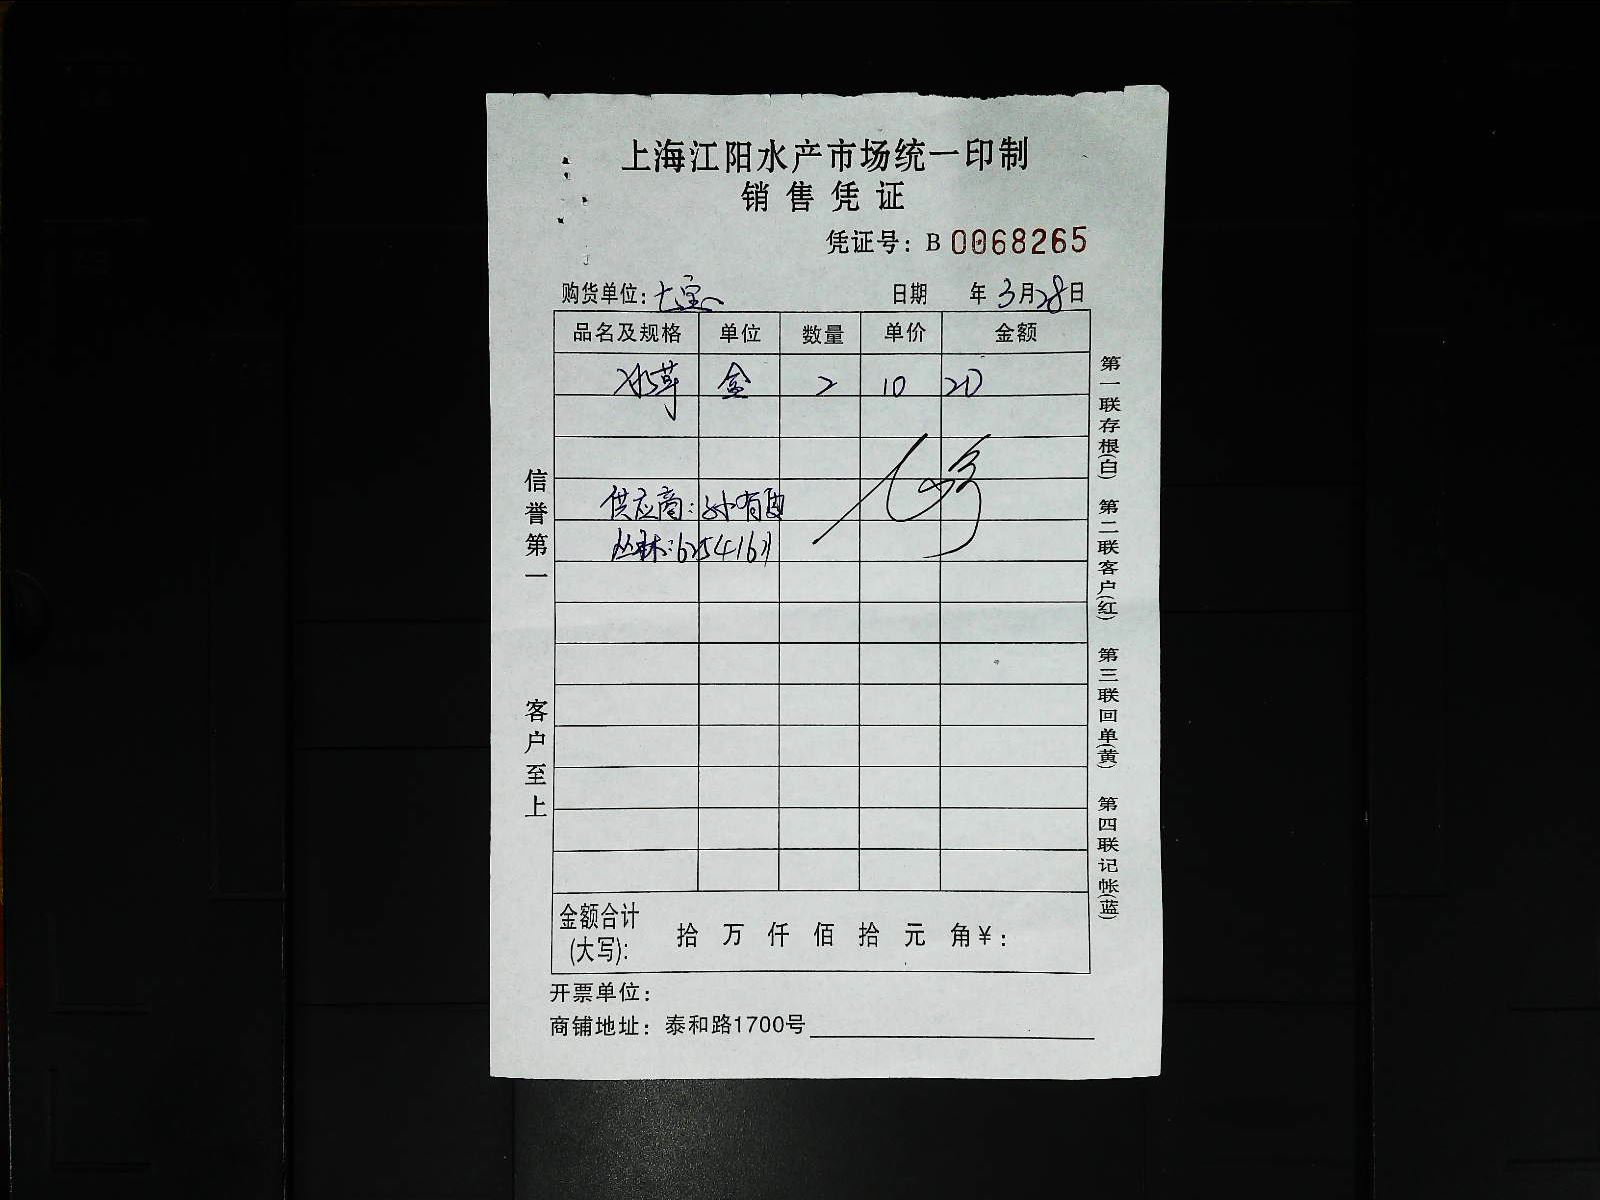 上海江阳水产市场统一印制
销售凭证
凭证号: B 0068265
购货单位: 七宝
日期 年 3月28日
品名及规格 单位 数量 单价 金额
水草 盒 2 10 20
供应商: 孙有
6254163
金额合计(大写): 拾 万 仟 佰 拾 元 角 ¥:
开票单位:
商铺地址: 泰和路1700号
信誉第一 客户至上
第一联存根(白) 第二联客户(红) 第三联回单(黄) 第四联记帐(蓝)